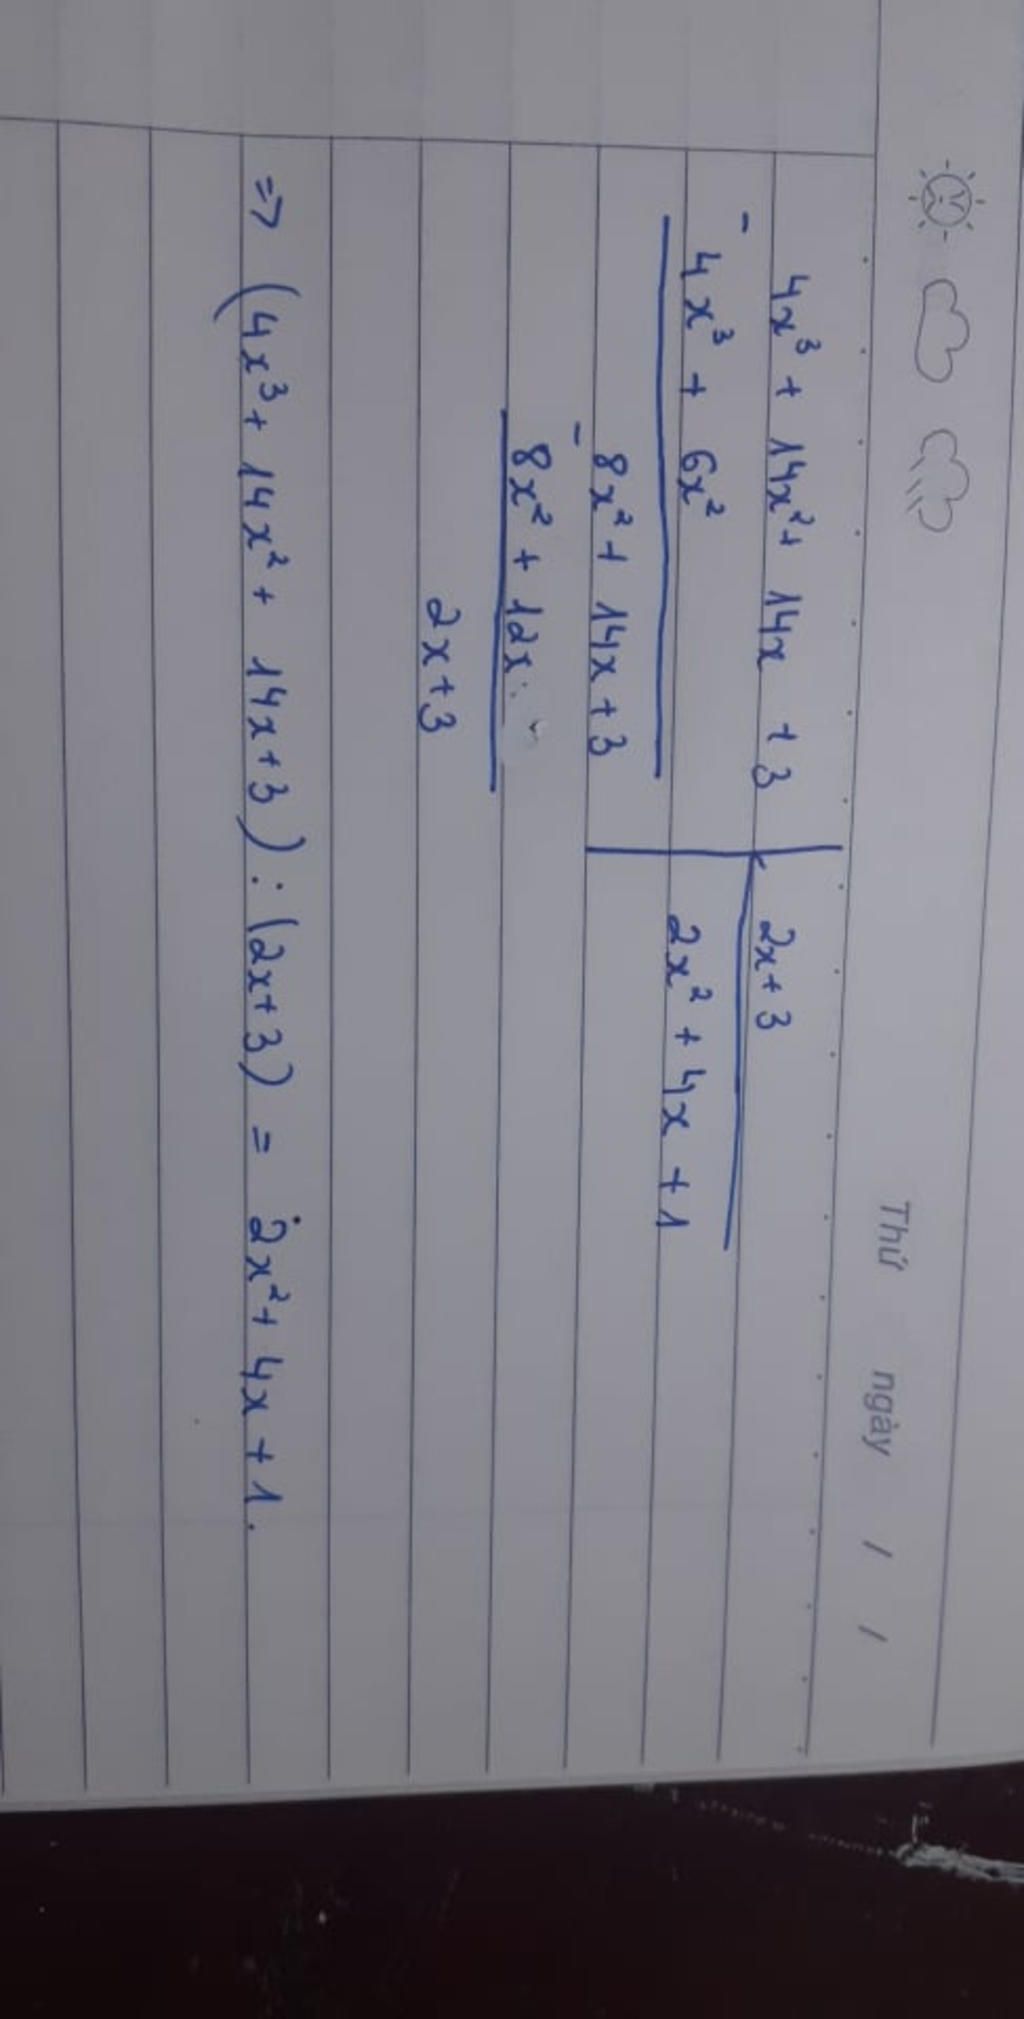 Thứ ngày / /
4x³ + 14x² + 14x + 3 | 2x + 3
- 4x³ + 6x² | 2x² + 4x + 1
8x² + 14x + 3
- 8x² + 12x
2x + 3
=> (4x³ + 14x² + 14x + 3) : (2x + 3) = 2x² + 4x + 1.